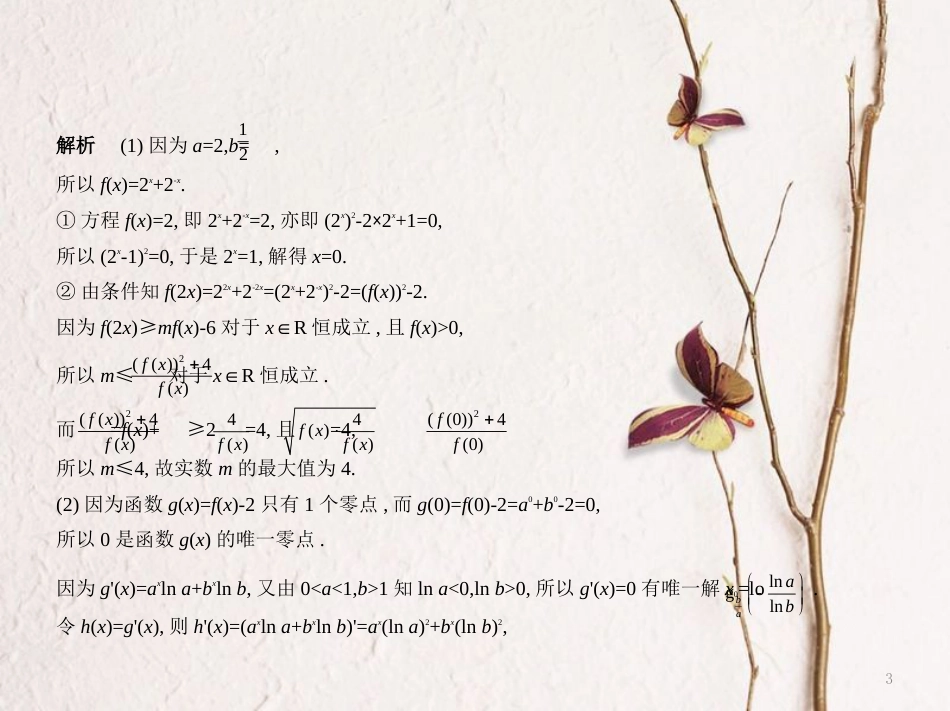 解析 (1) 因为 a=2,b=1/2 ,
所以 f(x)=2ˣ+2⁻ˣ.
① 方程 f(x)=2, 即 2ˣ+2⁻ˣ=2, 亦即 (2ˣ)²-2×2ˣ+1=0,
所以 (2ˣ-1)²=0, 于是 2ˣ=1, 解得 x=0.
② 由条件知 f(2x)=2²ˣ+2⁻²ˣ=(2ˣ+2⁻ˣ)²-2=(f(x))²-2.
因为 f(2x)≥mf(x)-6 对于 x∈R 恒成立 , 且 f(x)>0,
所以 m≤((f(x))²+4)/f(x) 对于 x∈R 恒成立 .
而 ((f(x))²+4)/f(x) =f(x)+ 4/f(x) ≥2√(f(x)·4/f(x)) =4, 且 ((f(0))²+4)/f(0) =4,
所以 m≤4, 故实数 m 的最大值为 4.
(2) 因为函数 g(x)=f(x)-2 只有 1 个零点 , 而 g(0)=f(0)-2=a⁰+b⁰-2=0,
所以 0 是函数 g(x) 的唯一零点 .
因为 g'(x)=aˣln a+bˣln b, 又由 0<a<1,b>1 知 ln a<0,ln b>0, 所以 g'(x)=0 有唯一解 x₀=log_(b/a) (-ln a/ln b) .
令 h(x)=g'(x), 则 h'(x)=(aˣln a+bˣln b)'=aˣ(ln a)²+bˣ(ln b)²,
3